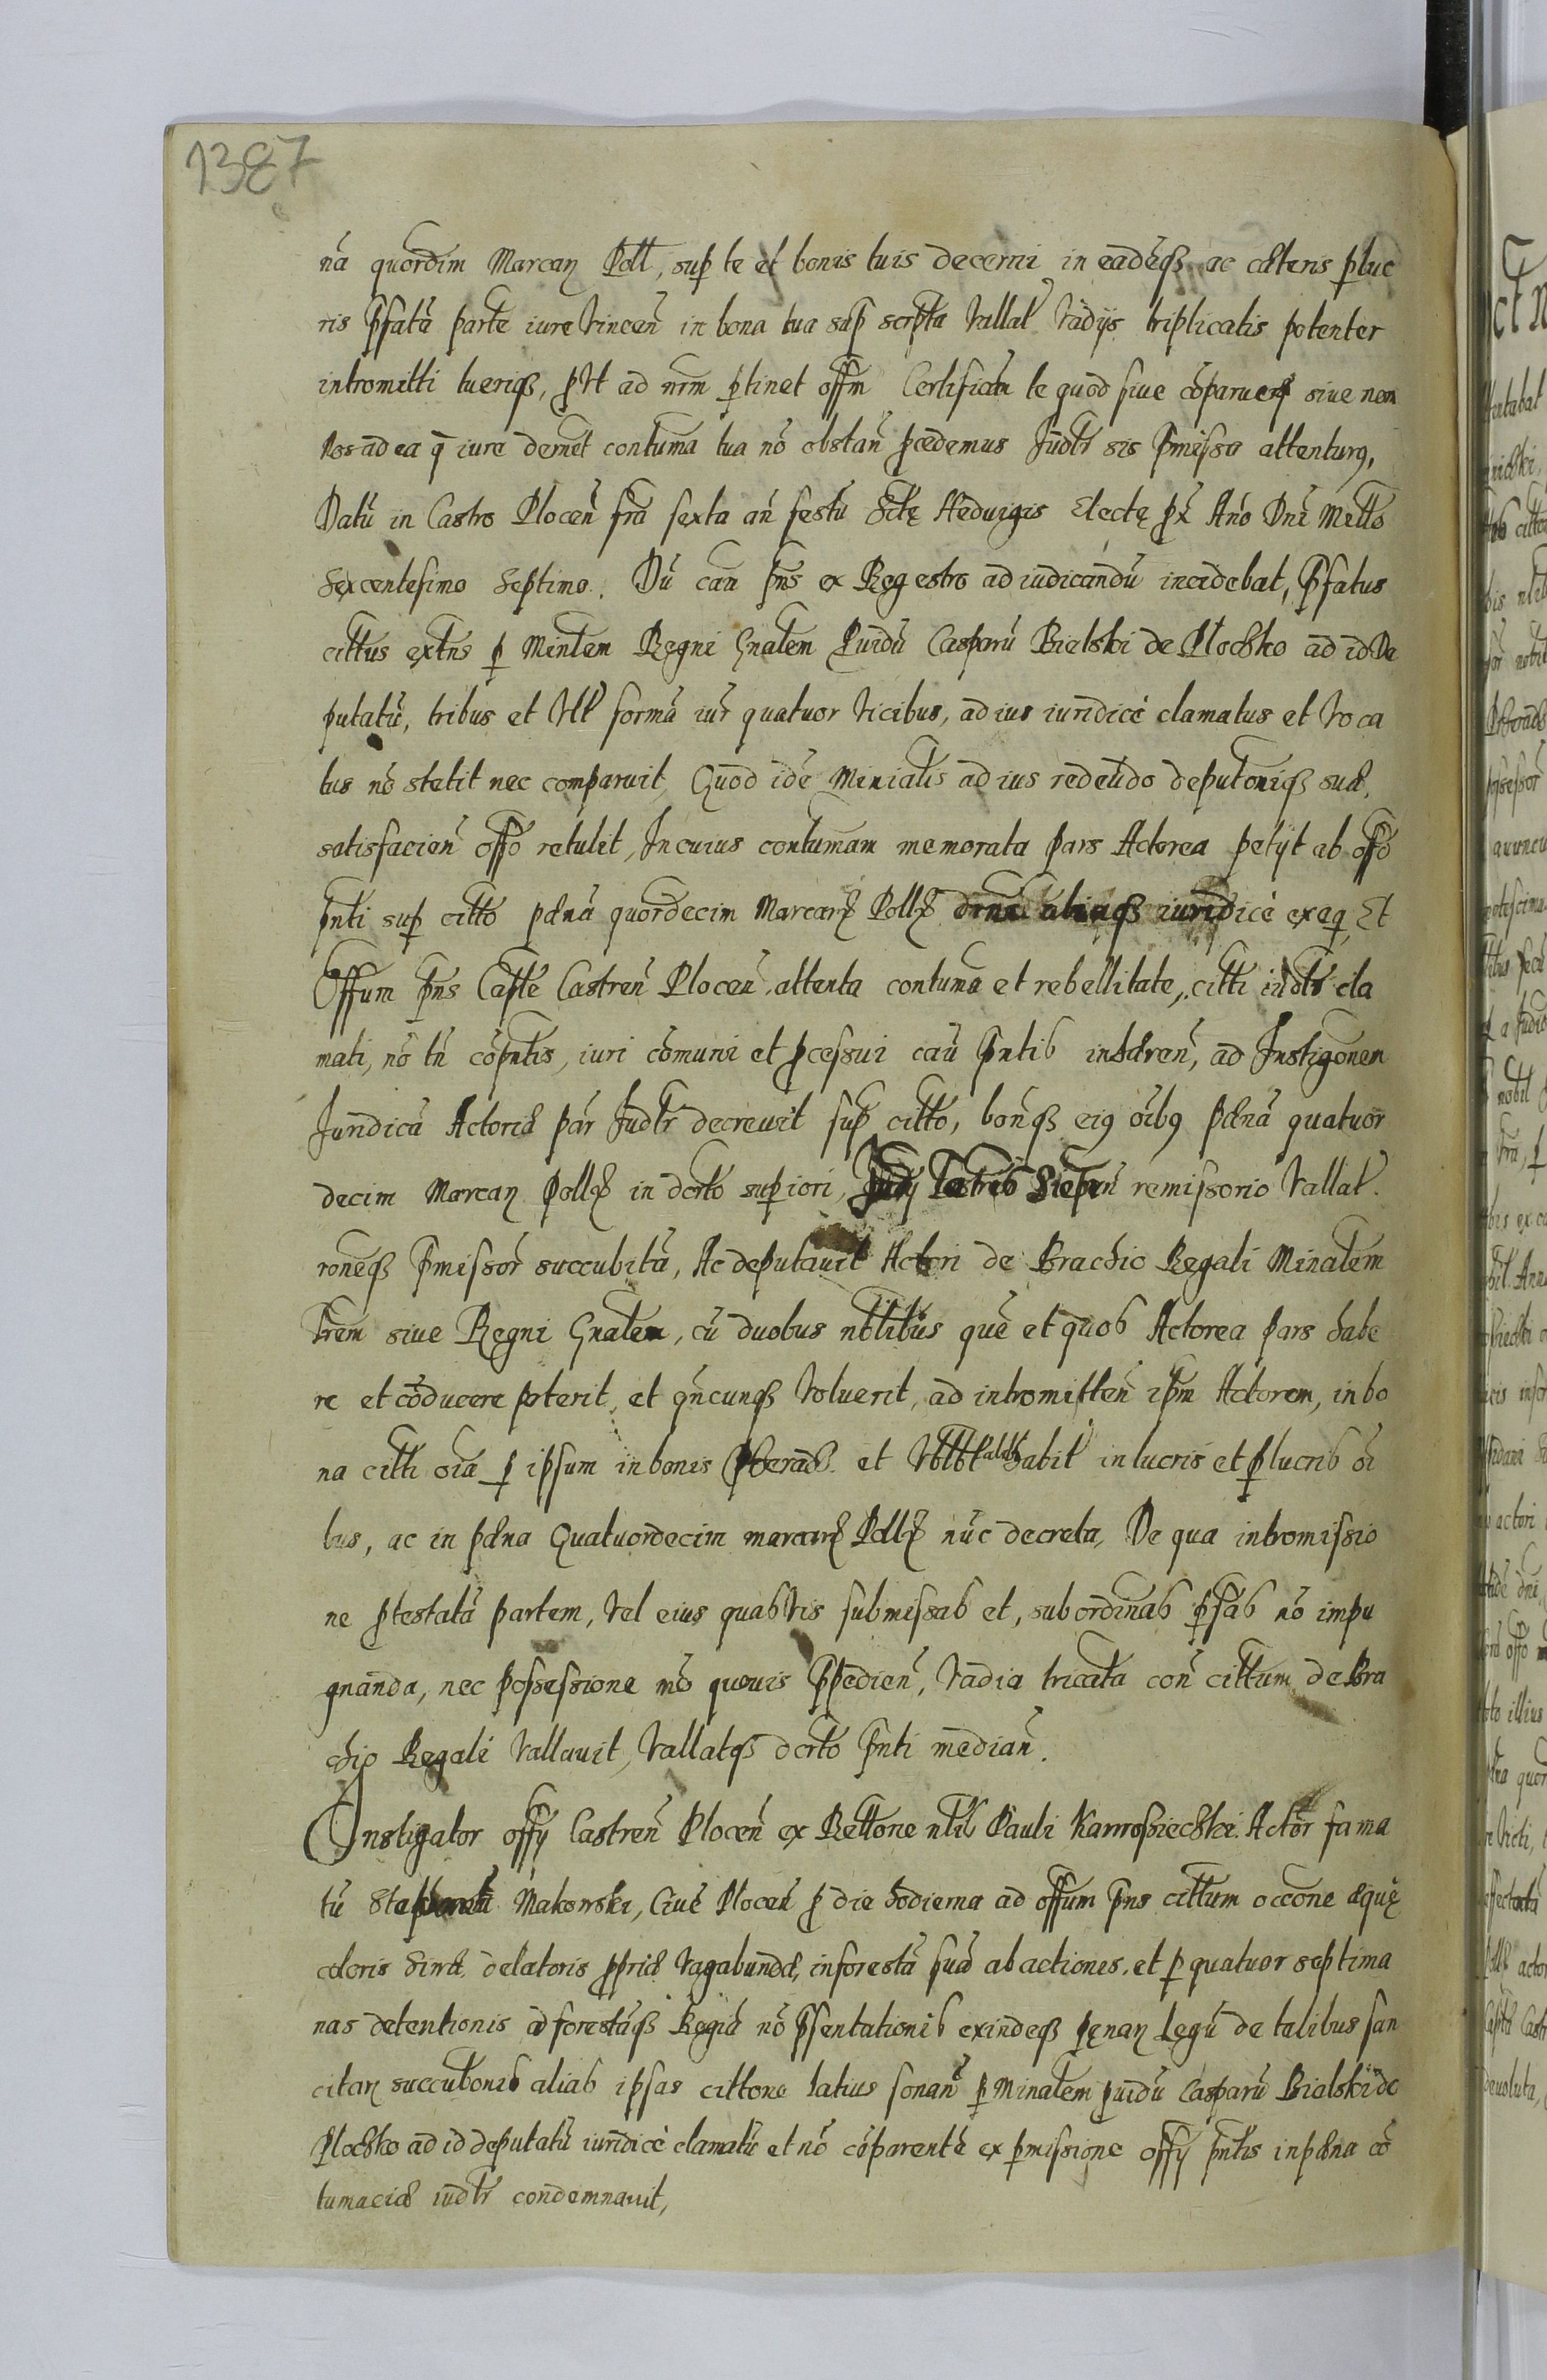 1387
nā quordm Marcaꝝ Poll, sup te et bonis tuis decerni in eadēqꝫ ac cæteris ꝑluc
ris p̄fatā parte iure Vincen̄ in bona tua sup scrp̄ta Vallat Vadijs triplicatis potenter
intromitti tueriqꝫ, ꝓVt ad nr̄m ꝑtinet off̄m Certifican te quod siue cōparueris siue non
Nos ad ea q̄ iure dernet contuma tua nō obstan̄ ꝓcedemus Judtr sis p̄missa attenturꝰ,
Datū in Castro Plocen̄ fr̄a sexta an̄ festū Sctę Heduigis Electę px̄ Año Dn̄i Millo
Sexcentesimo Septimo. Dū can p̄ns ex Regestro ad iudicandū incidebat, p̄fatus
cittus extn̄s ꝑ Mintem Regni Gn̄alem Puidū Casparū Bielski de Plocsko ad id De
putatū, tribus et Vlt formā iur̄ quatuor Vicibus, ad ius iuridicè clamatus et Voca
tus nō stetit nec comparuit, Quod idē Minialis ad ius redeūdo deputoniqꝫ suæ,
satisfacien̄ offo retulit, In cuius contumam memorata pars Actorea petijt ab offo
p̄nti sup citto pænā quordecim Marcarꝫ Pollꝫ iuridicè exeq, Et
Offum p̄ns Capt̄le Castren̄ Plocen̄ attenta contuma et rebellitate, citti iudtr cla
mati, nō tn̄ cōpn̄tis, iuri cōmuni et ꝓcessui cau p̄ntib inhæren̄, ad Instigonem
Juridicā Actoreæ par Judtr decreuit sup citto, bonqꝫ eiꝰ oībꝰ pænā quatuor
decim Marcaꝝ Pollꝫ in dcrto superiori, remissorio Vallat.
roneqꝫ p̄missor̄ succubitā, Ac deputauit Actori de Brachio Regali Minalem
Trem siue Regni Gn̄alem, cū duobus nblibus quē et quos Actorea pars habe
re et cōducere poterit, et qn̄cunqꝫ Voluerit, ad intromitten̄ ipm̄ Actorem, in bo
na citti oīa ꝑ ipsum in bonis et habit in lucris et ꝑlucris oī
bus, ac in pæna Quatuordecim marcarꝫ Pollꝫ nūc decreta, De qua intromissio
ne ꝓtestatā partem, Vel eius quasVis submissas et, subordinas ꝑsas nō impu
gnanda, nec possessione mō quouis p̄pedien̄, Vadia tricata con̄ cittum de Bra
chio Regali Vallauit, Vallatqꝫ dcrto p̄nti median̄.
Instigator offij Castren̄ Plocen̄ ex Rettone nbl Pauli Karwosiecki Actor fama
tū Makowski, Ciuē Plocen̄ ꝓ die hodierna ad offum p̄ns cittum occone æquę
coloris delatoris ꝓpriæ Vagabundæ, in forestā suā abactiones, et ꝑ quatuor septima
nas detentionis ad forestāqꝫ Regiā nō p̄sentationis exindeqꝫ pęnaꝝ Legū de talibus san
citaꝝ succutonis alias ipsas cittone latius sonan̄ ꝑ Minalem puidū Casparū Bialski de
Plocsko ad id deputatū iuridicè clamatū et nō cōparentē ex ꝑmissione offij p̄ntis in pæna cō
tumaciæ iudtr condemnauit,